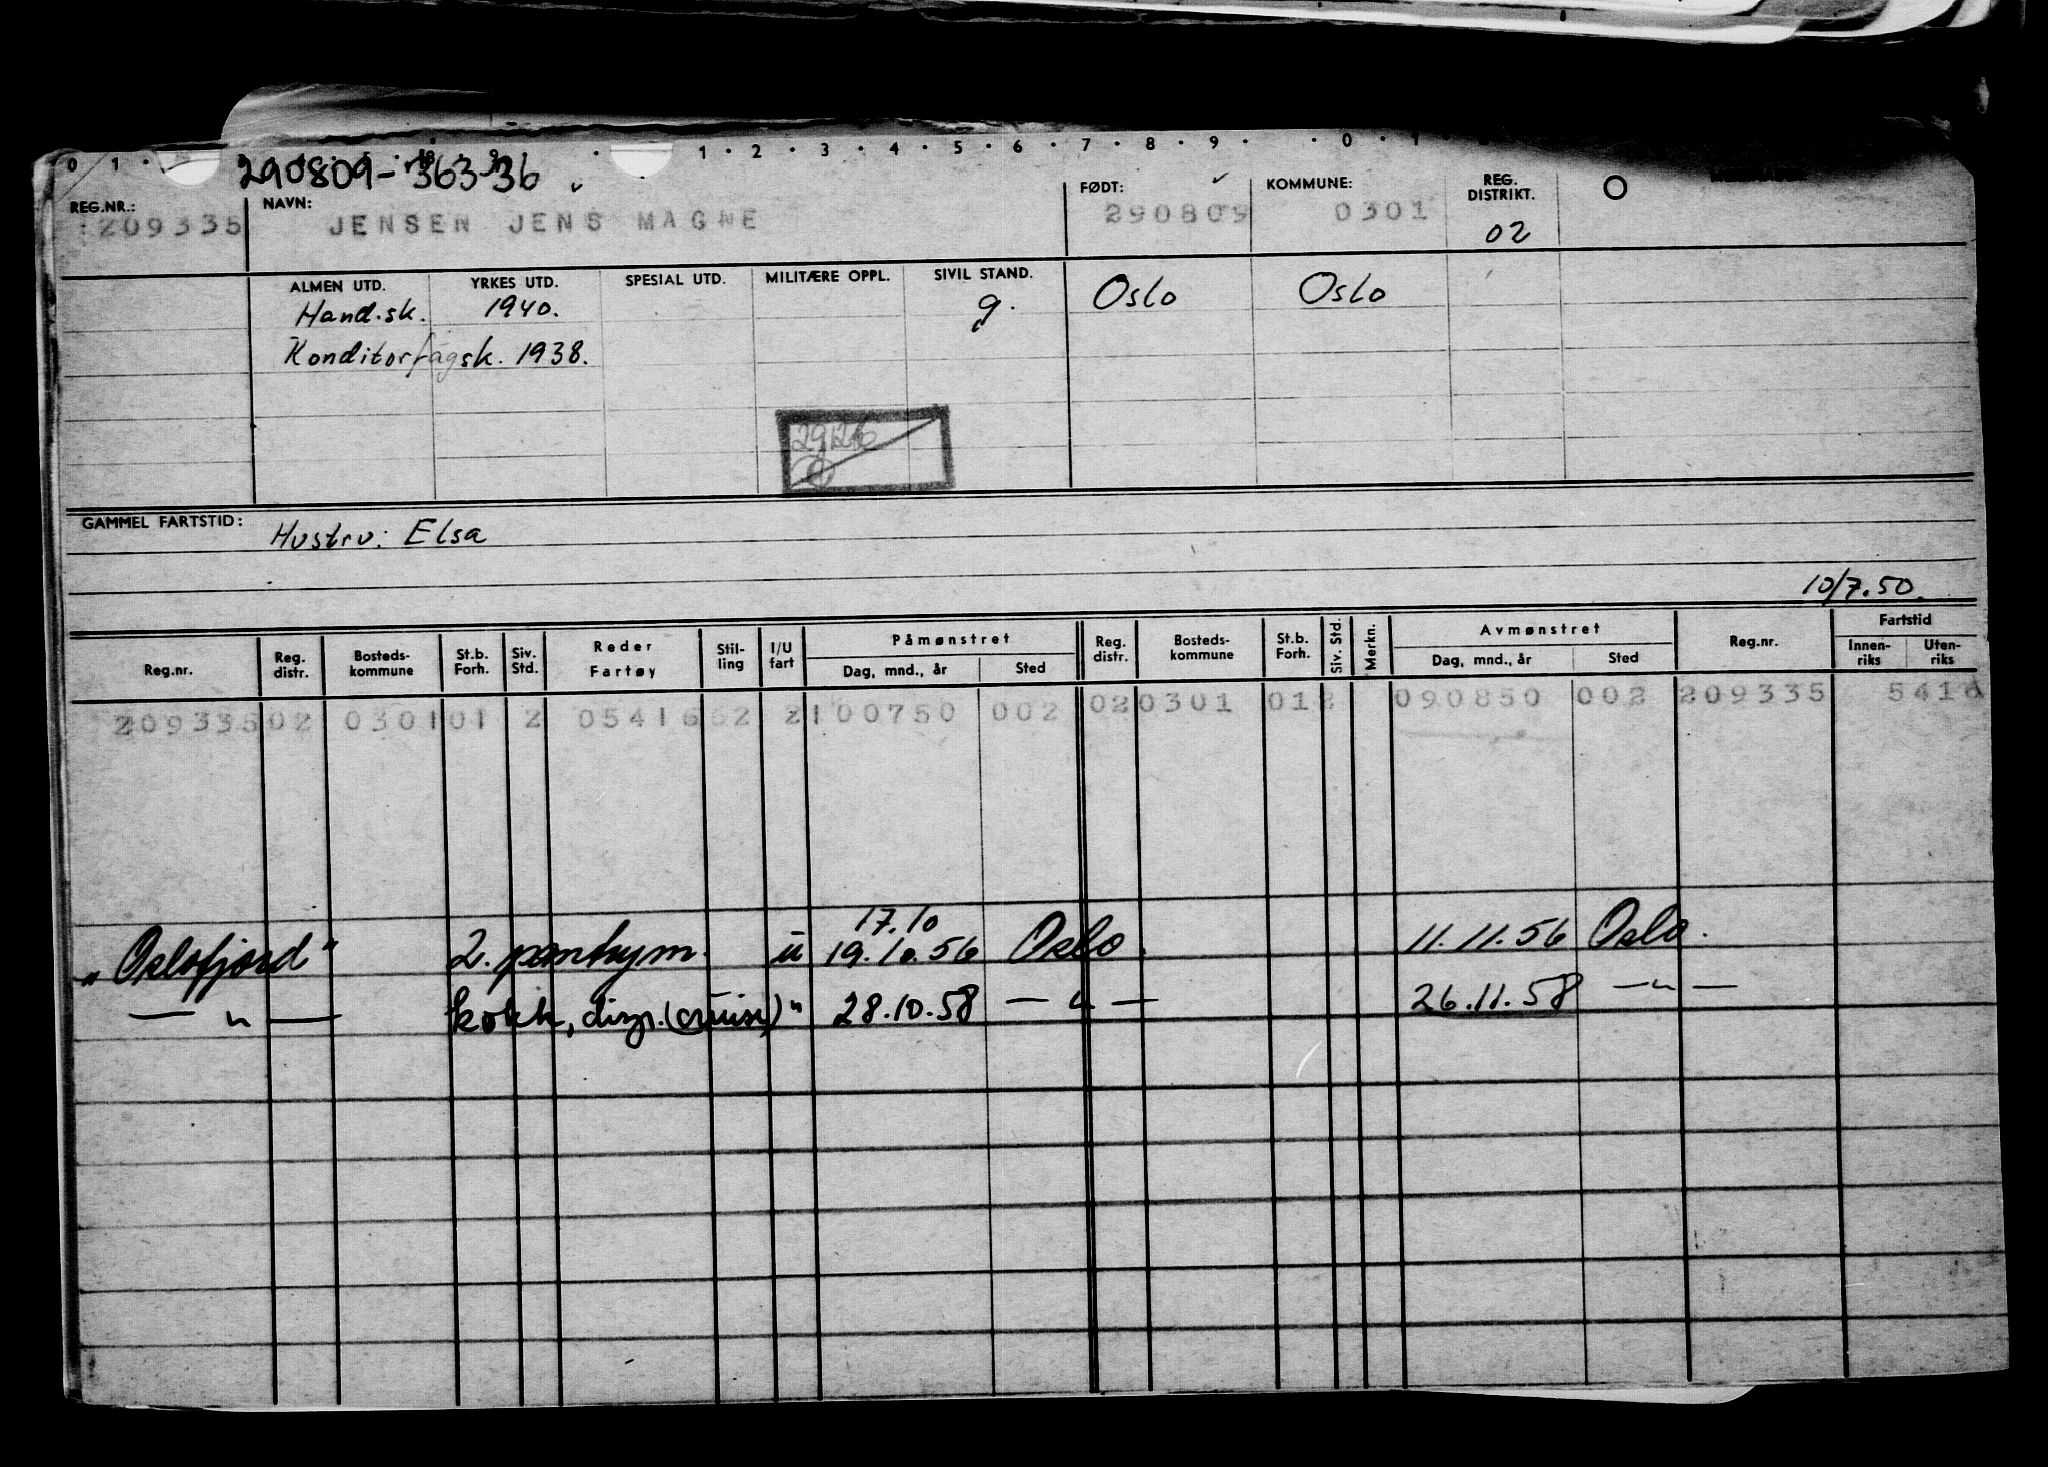 0 1 . . 1 . 2 . 3 . 4 . 5 . 6 . 7 . 8 . 9 . 0 . 1
290809-36336
REG.NR.: NAVN: FØDT: KOMMUNE: REG. DISTRIKT.
209335 JENSEN JENS MAGNE 290809 0301 02
ALMEN UTD. YRKES UTD. SPESIAL UTD. MILITÆRE OPPL. SIVIL STAND.
Hand.sk. 1940. g. Oslo Oslo
Konditorfagsk. 1938.
GAMMEL FARTSTID: Hustru: Elsa
10/7.50.
Reg.nr. Reg. distr. Bosteds-kommune St.b. Forh. Siv. Std. Reder Fartøy Stil-ling I/U fart Påmønstret Dag, mnd., år Sted Reg. distr. Bosteds-kommune St.b. Forh. Siv. Std. Merkn. Avmønstret Dag, mnd., år Sted Reg.nr. Fartstid Innen-riks Uten-riks
209335 02 0301 01 2 0541662 2 100750 002 02 0301 012 090850 002 209335 541
17.10
"Oslofjord" 2. u 19.10.56 Oslo. 11.11.56 Oslo.
— " — kokk, (cruise) " 28.10.58 — " — 26.11.58 — " —